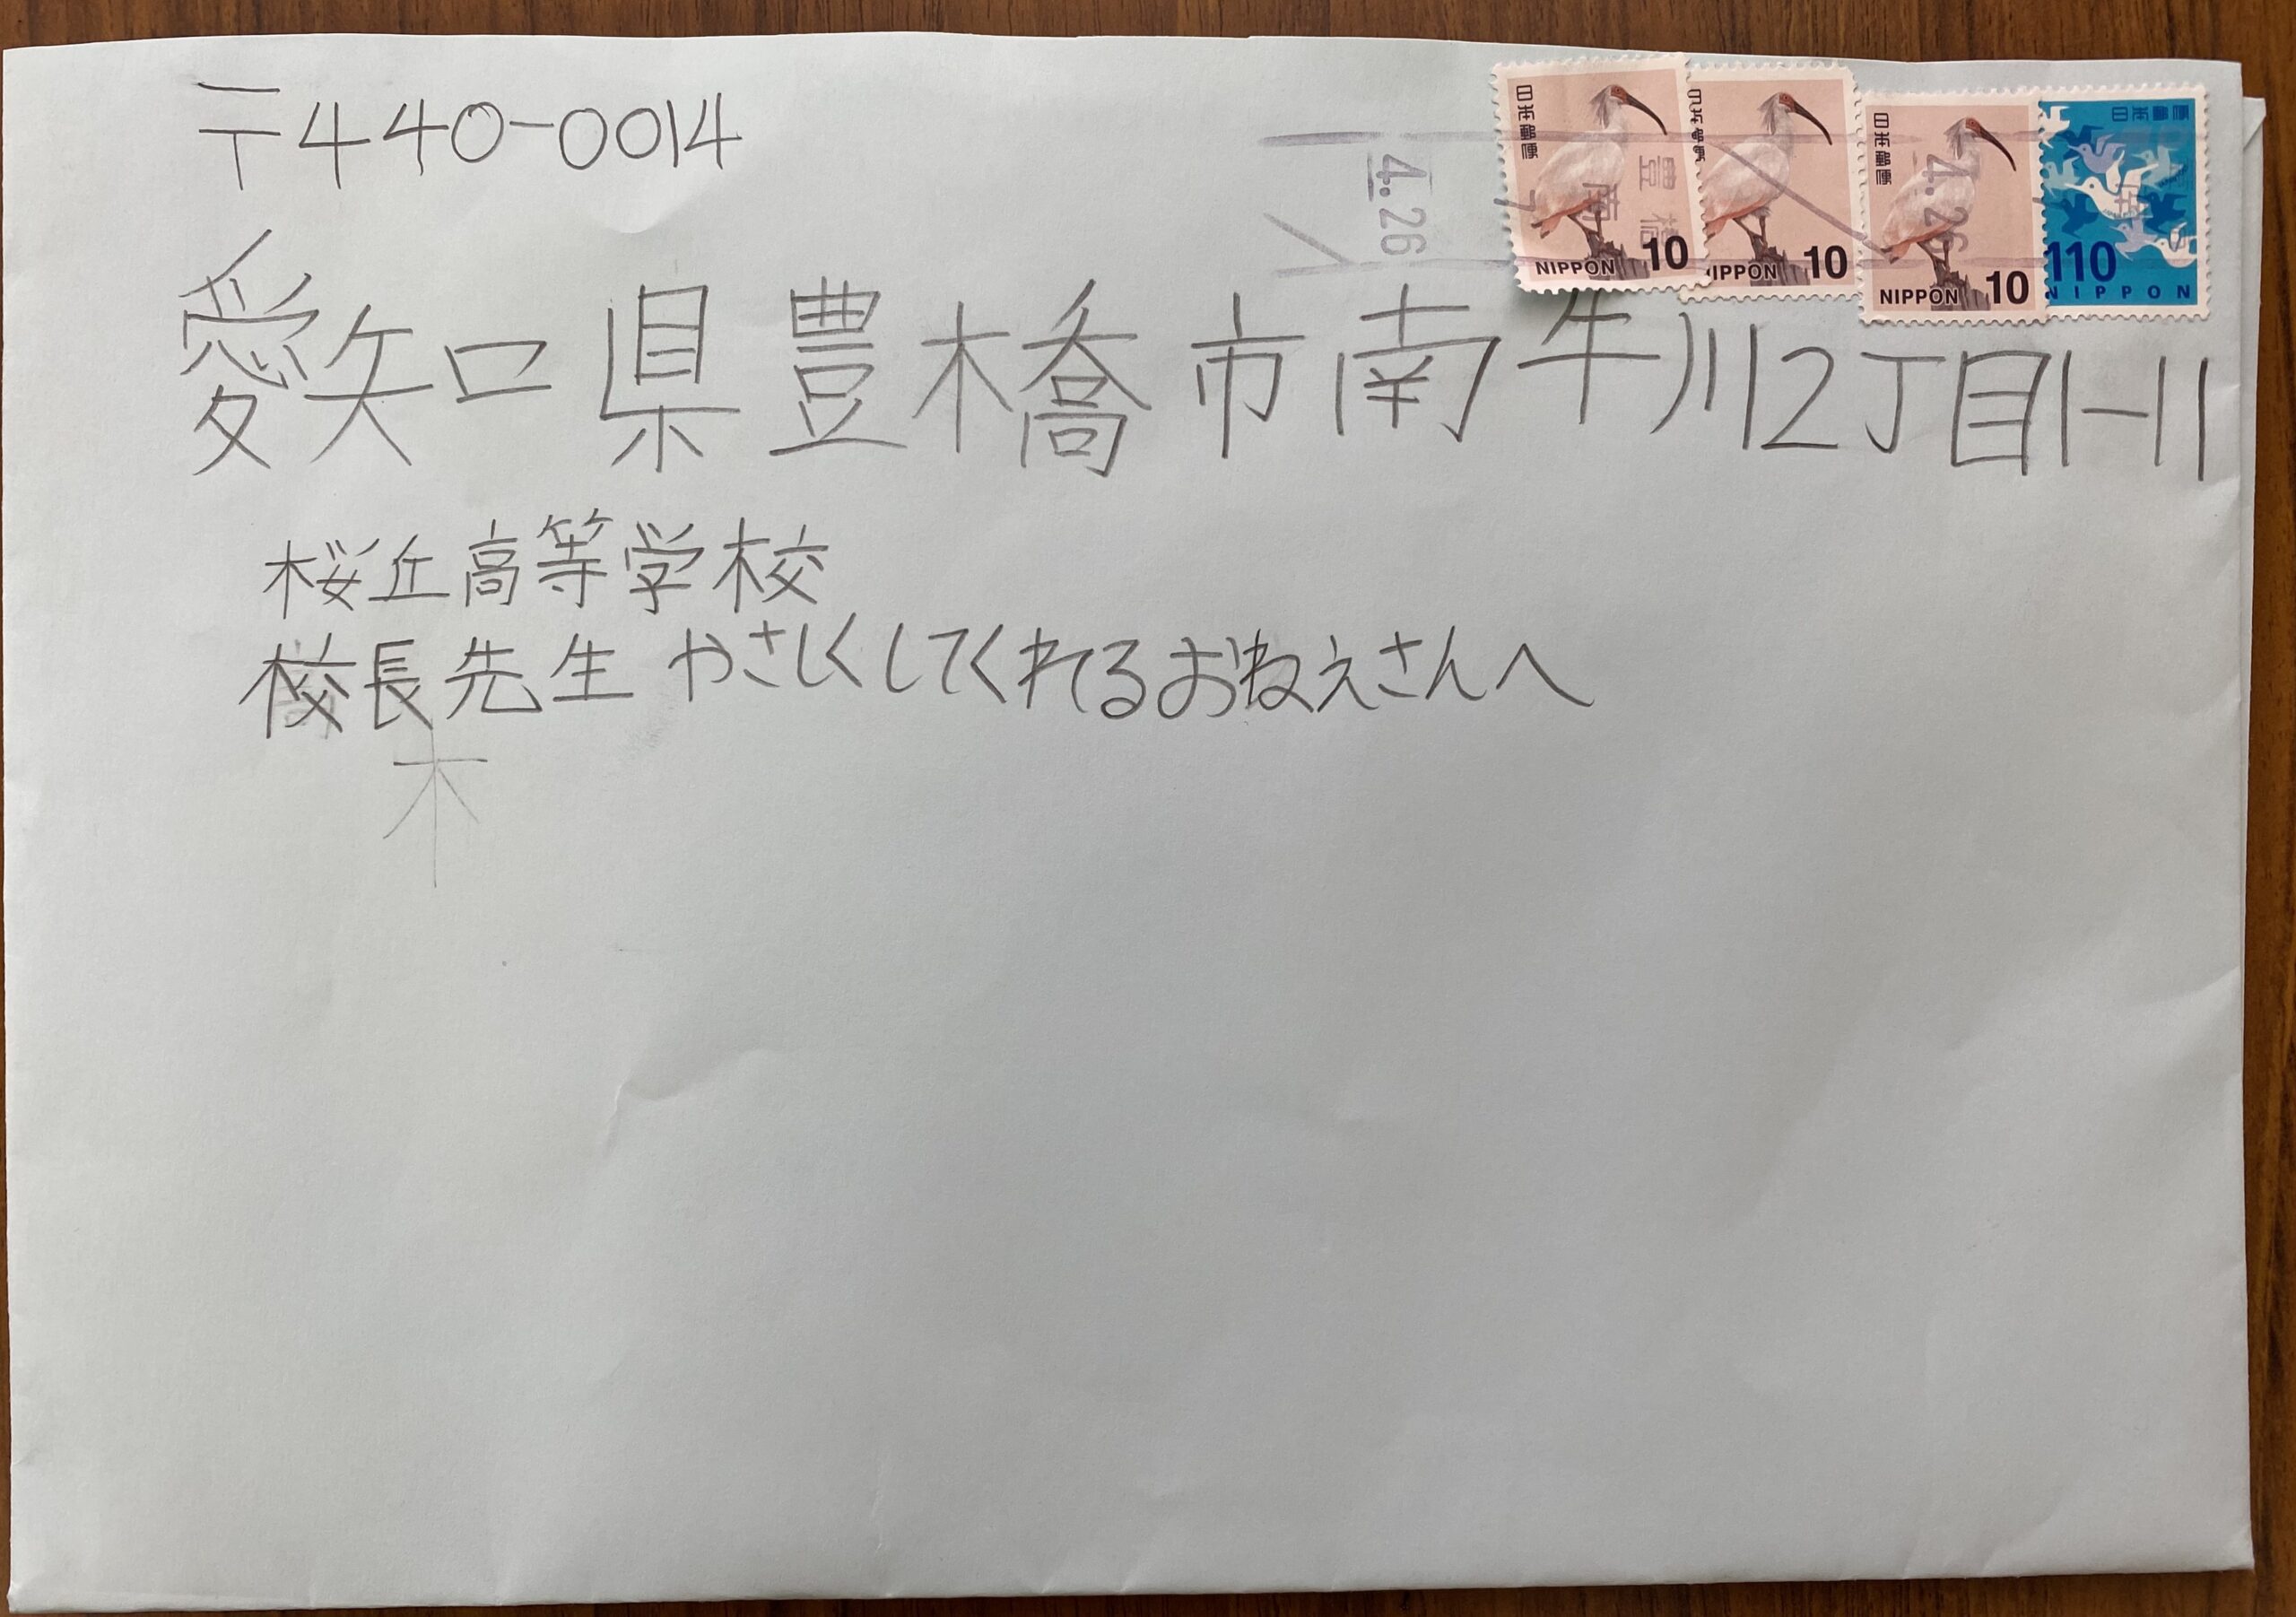 〒440-0014
愛知県豊橋市南牛川2丁目1-11
桜丘高等学校
校長先生 やさしくしてくれるおねえさんへ
木
日本郵便 NIPPON 10
日本郵便 NIPPON 10
日本郵便 NIPPON 10
日本郵便 110 NIPPON
豊橋南
4.26
4.26